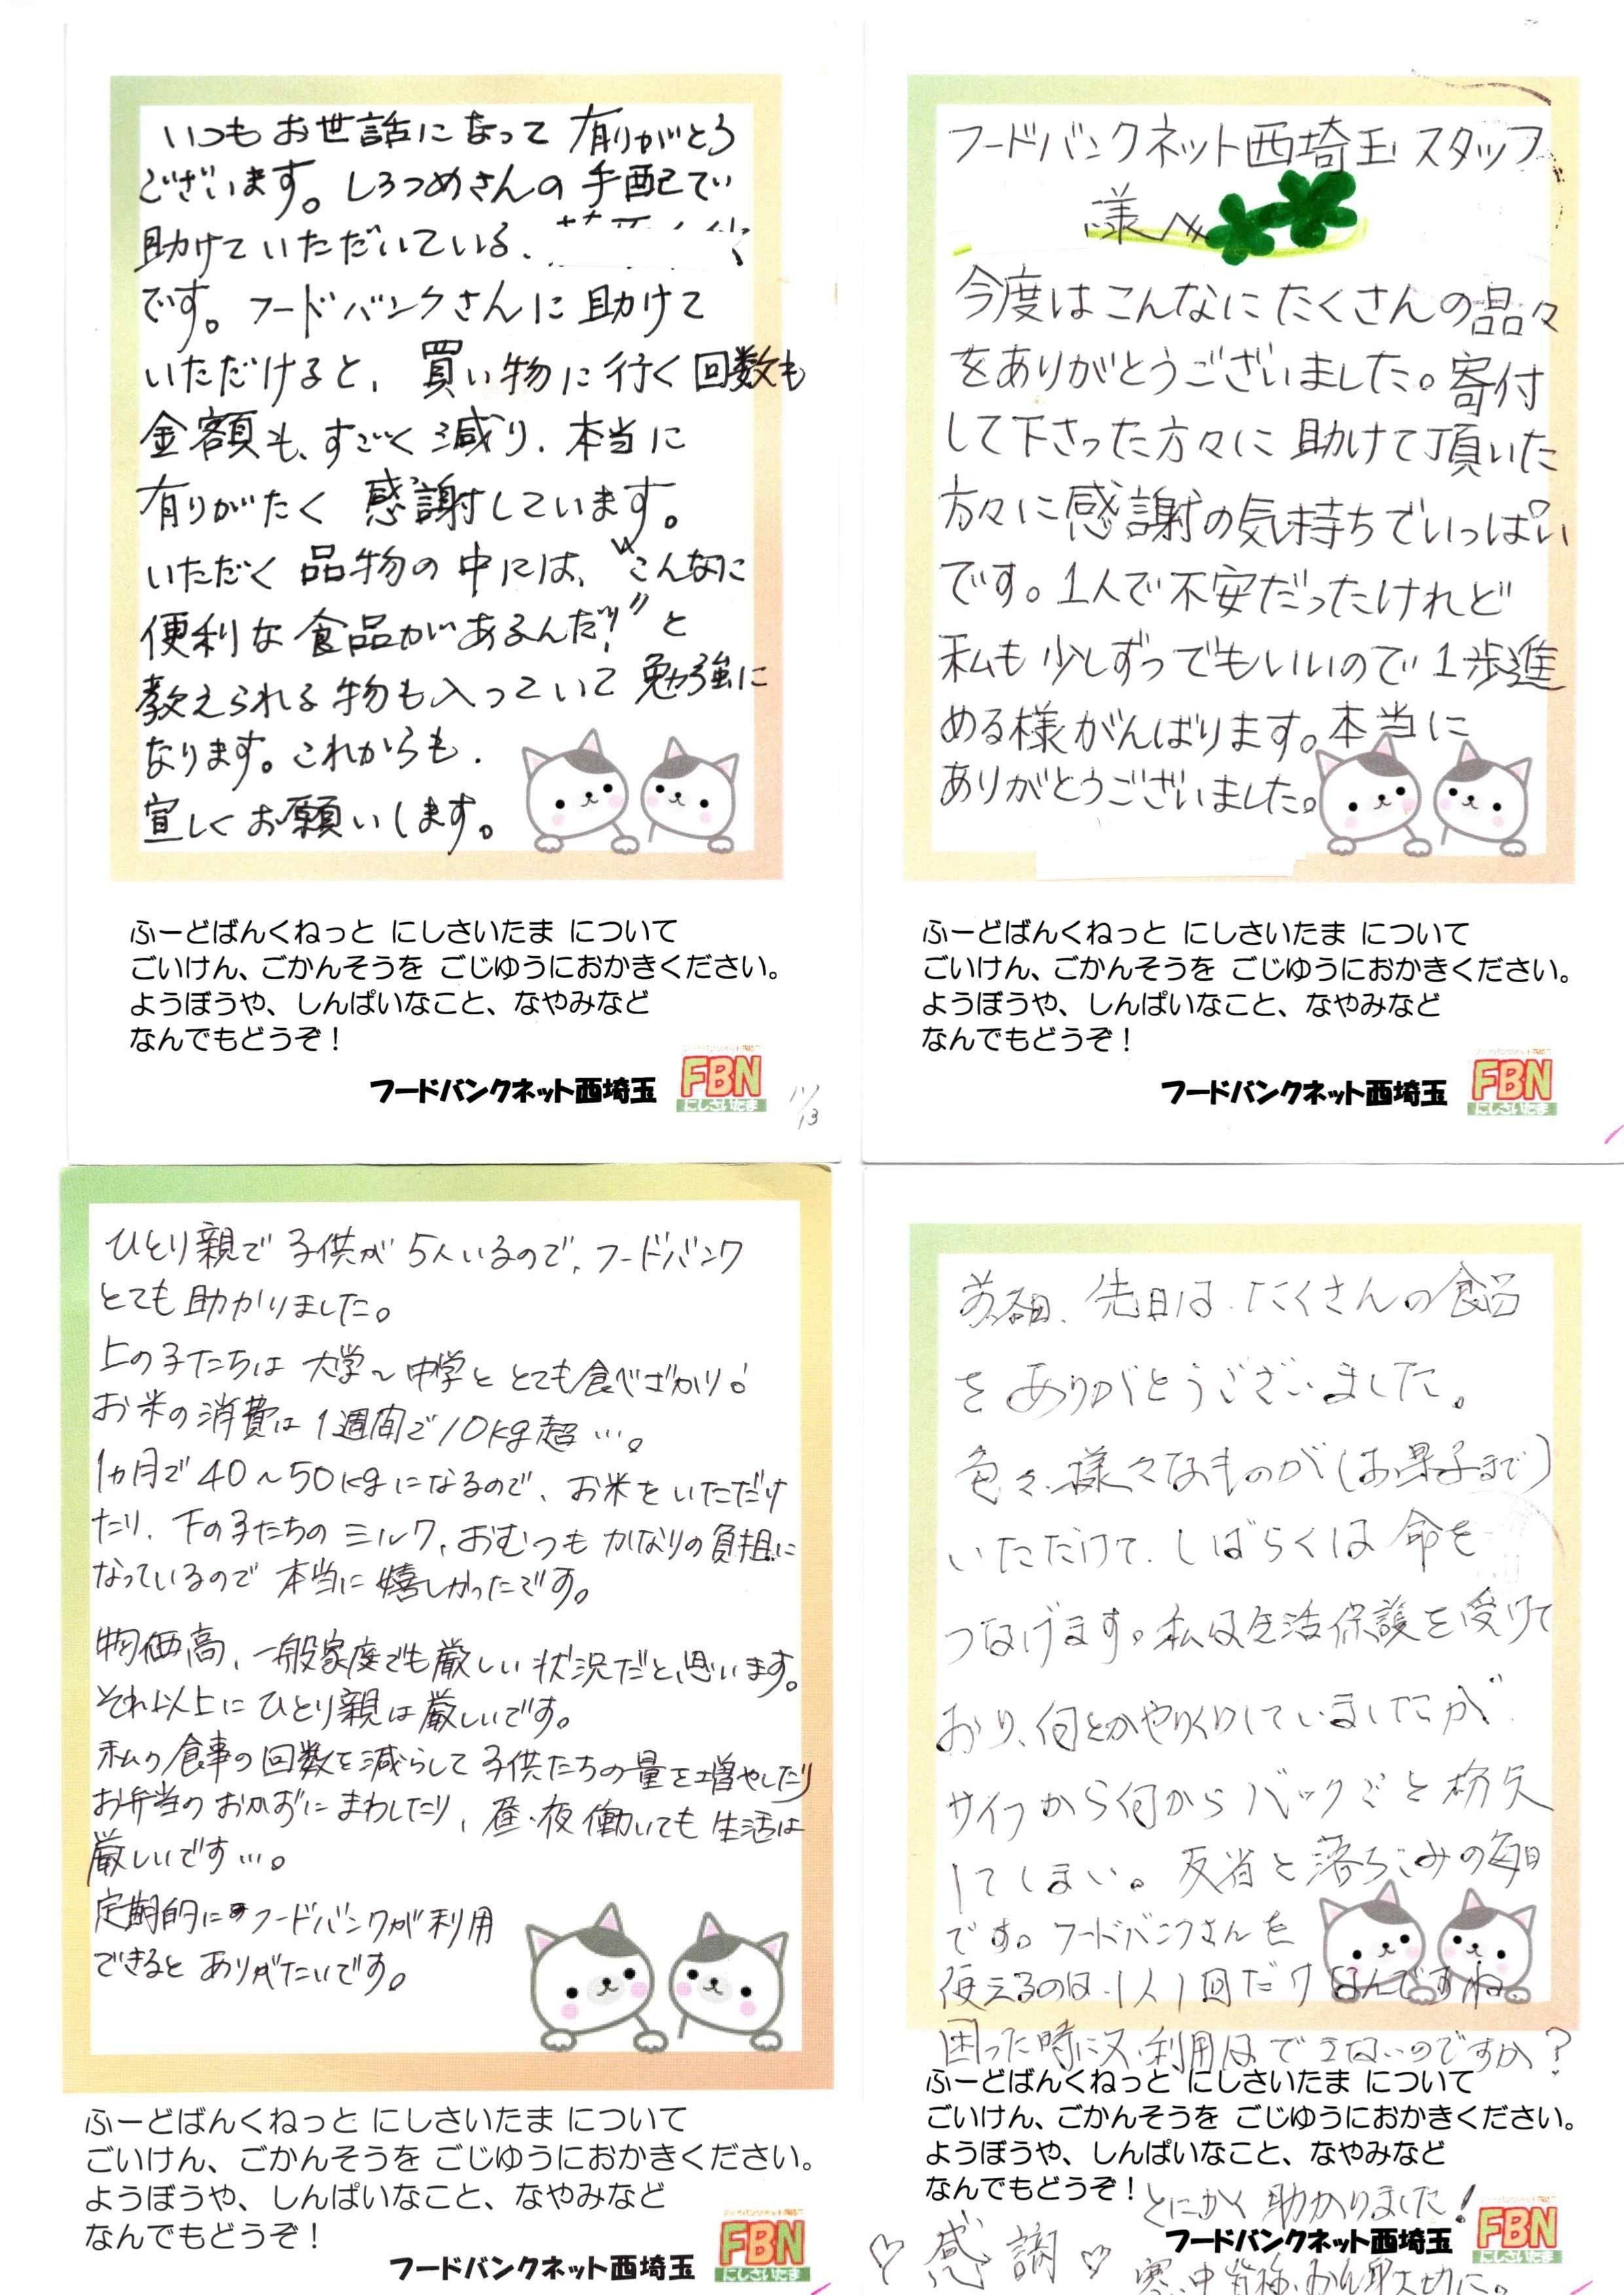 いつもお世話になって 有りがとう
ございます。しろつめさんの 手配で
助けていただいている、
です。フードバンクさんに 助けて
いただけると、買い物に行く回数も
金額も、すごく減り、本当に
有りがたく 感謝しています。
いただく 品物の中には、〝こんなに
便利な食品があるんだ!〟と
教えられる物も入っていて 勉強に
なります。これからも、
宜しくお願いします。
ふーどばんくねっと にしさいたま について
ごいけん、ごかんそうを ごじゆうにおかきください。
ようぼうや、しんぱいなこと、なやみなど
なんでもどうぞ!
フードバンクネット西埼玉
FBN
にしさいたま
11/13
フードバンクネット西埼玉 スタッフ
様へ
今度はこんなに たくさんの品々
をありがとうございました。寄付
して下さった方々に 助けて頂いた
方々に感謝の気持ちでいっぱい
です。1人で不安だったけれど
私も少しずつでもいいので 1歩進
める様がんばります。本当に
ありがとうございました。
ふーどばんくねっと にしさいたま について
ごいけん、ごかんそうを ごじゆうにおかきください。
ようぼうや、しんぱいなこと、なやみなど
なんでもどうぞ!
フードバンクネット西埼玉
FBN
にしさいたま
ひとり親で 子供が 5人いるので、フードバンク
とても助かりました。
上の子たちは 大学~中学と とても食べざかり!
お米の消費は1週間で10kg超…。
1ヵ月で 40~50kgになるので、お米をいただけ
たり、下の子たちのミルク、おむつも かなりの負担に
なっているので 本当に嬉しかったです。
物価高、一般家庭でも厳しい状況だと思います。
それ以上にひとり親は厳しいです。
私の食事の回数を減らして 子供たちの量を増やしたり
お弁当の おかずに まわしたり、昼・夜働いても 生活は
厳しいです…。
定期的に フードバンクが利用
できると ありがたいです。
ふーどばんくねっと にしさいたま について
ごいけん、ごかんそうを ごじゆうにおかきください。
ようぼうや、しんぱいなこと、なやみなど
なんでもどうぞ!
フードバンクネット西埼玉
FBN
にしさいたま
先日は、たくさんの食品
を ありがとうございました。
色々、様々なものが(お菓子まで)
いただけて、しばらくは 命を
つなげます。私は生活保護を受けて
おり、何とかやりくりしていましたが、
サイフから何からバックごと紛失
してしまい。反省と落ちこみの毎日
です。フードバンクさんを
使えるのは、1人1回だけなんですね。
困った時に又、利用はできないのですか?
ふーどばんくねっと にしさいたま について
ごいけん、ごかんそうを ごじゆうにおかきください。
ようぼうや、しんぱいなこと、なやみなど
なんでもどうぞ!
とにかく 助かりました!
フードバンクネット西埼玉
FBN
にしさいたま
♡感謝♡